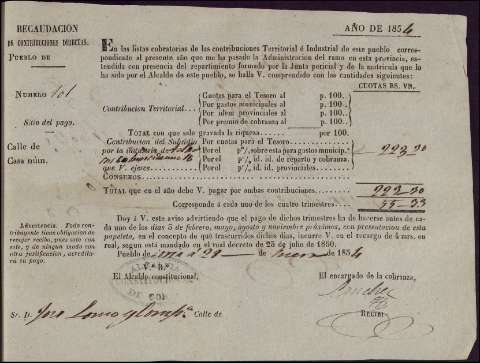 RECAUDACIÓN
DE CONTRIBUCIONES DIRECTAS.
PUEBLO DE
NUMERO 101
Sitio del pago.
Calle de
Casa núm.
Advertencia. Todo contribuyente tiene obligacion de recoger recibo, pues solo con este, y de ningun modo con otra justificacion, acreditará su pago.
AÑO DE 1854
En las listas cobratorias de las contribuciones Territorial é Industrial de este pueblo correspondiente al presente año que me ha pasado la Administracion del ramo en esta provincia, estendida con presencia del repartimiento formado por la Junta pericial y de la matrícula que lo ha sido por el Alcalde de este pueblo, se halla V. comprendido con las cantidades siguientes:
CUOTAS RS. VN.
Contribucion Territorial.
Cuotas para el Tesoro al p. 100.
Por gastos municipales al p. 100.
Por idem provinciales al p. 100.
Por premio de cobranza al p. 100.
TOTAL con que sale gravada la riqueza. por 100.
Contribucion del Subsidio por la industria de
que V. ejerce.
Por cuotas para el Tesoro.
Por el p% sobre esta para gastos municip.s
Por el p% id. id. de reparto y cobranza.
Por el p% id. id. provinciales.
CONSUMOS
TOTAL que en el año debe V. pagar por ambas contribuciones.
Corresponde á cada uno de los cuatro trimestres.
Doy á V. este aviso advirtiendo que el pago de dichos trimestres ha de hacerse antes de cada uno de los dias 5 de febrero, mayo, agosto y noviembre próximos, con presentacion de esta papeleta, en el concepto de que trascurridos dichos dias, incurre V. en el recargo de 4 mrs. en real, segun está mandado en el real decreto de 23 de julio de 1850.
Pueblo de á 22 de de 1854
V.º B.º
El Alcalde constitucional,
El encargado de la cobranza,
RECIBÍ
Sr. D. Calle de